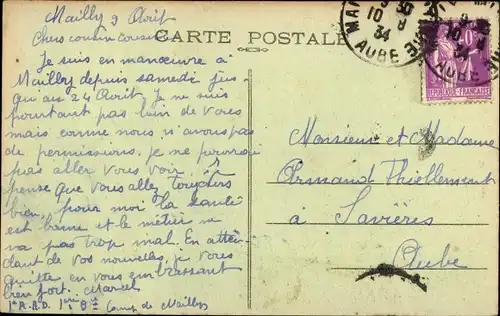 Mailly 9 Août
Chers cousin cousine
CARTE POSTALE
Je suis en manœuvre à
Mailly depuis samedi jus
qui au 24 Août. Je ne suis
pourtant pas loin de vous
mais comme nous n'avons pas
de permissions, je ne pourrai
pas aller vous voir. Je
pense que vous allez toujours
bien, pour moi la santé
est bonne et le métier ne
va pas trop mal. En atten
dant de vos nouvelles, je vous
quitte en vous embrassant
bien fort. Marcel
1er R.A.D. 8e Camp de Mailly
10 8
34
AUBE
RÉPUBLIQUE FRANÇAISE
Monsieur et Madame
Armand Thiellement
à Savières
Aube